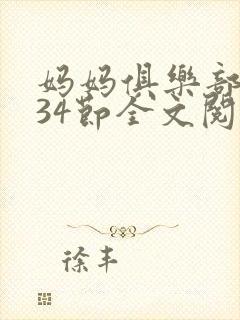 妈妈俱樂部
34节全文阅
徐丰